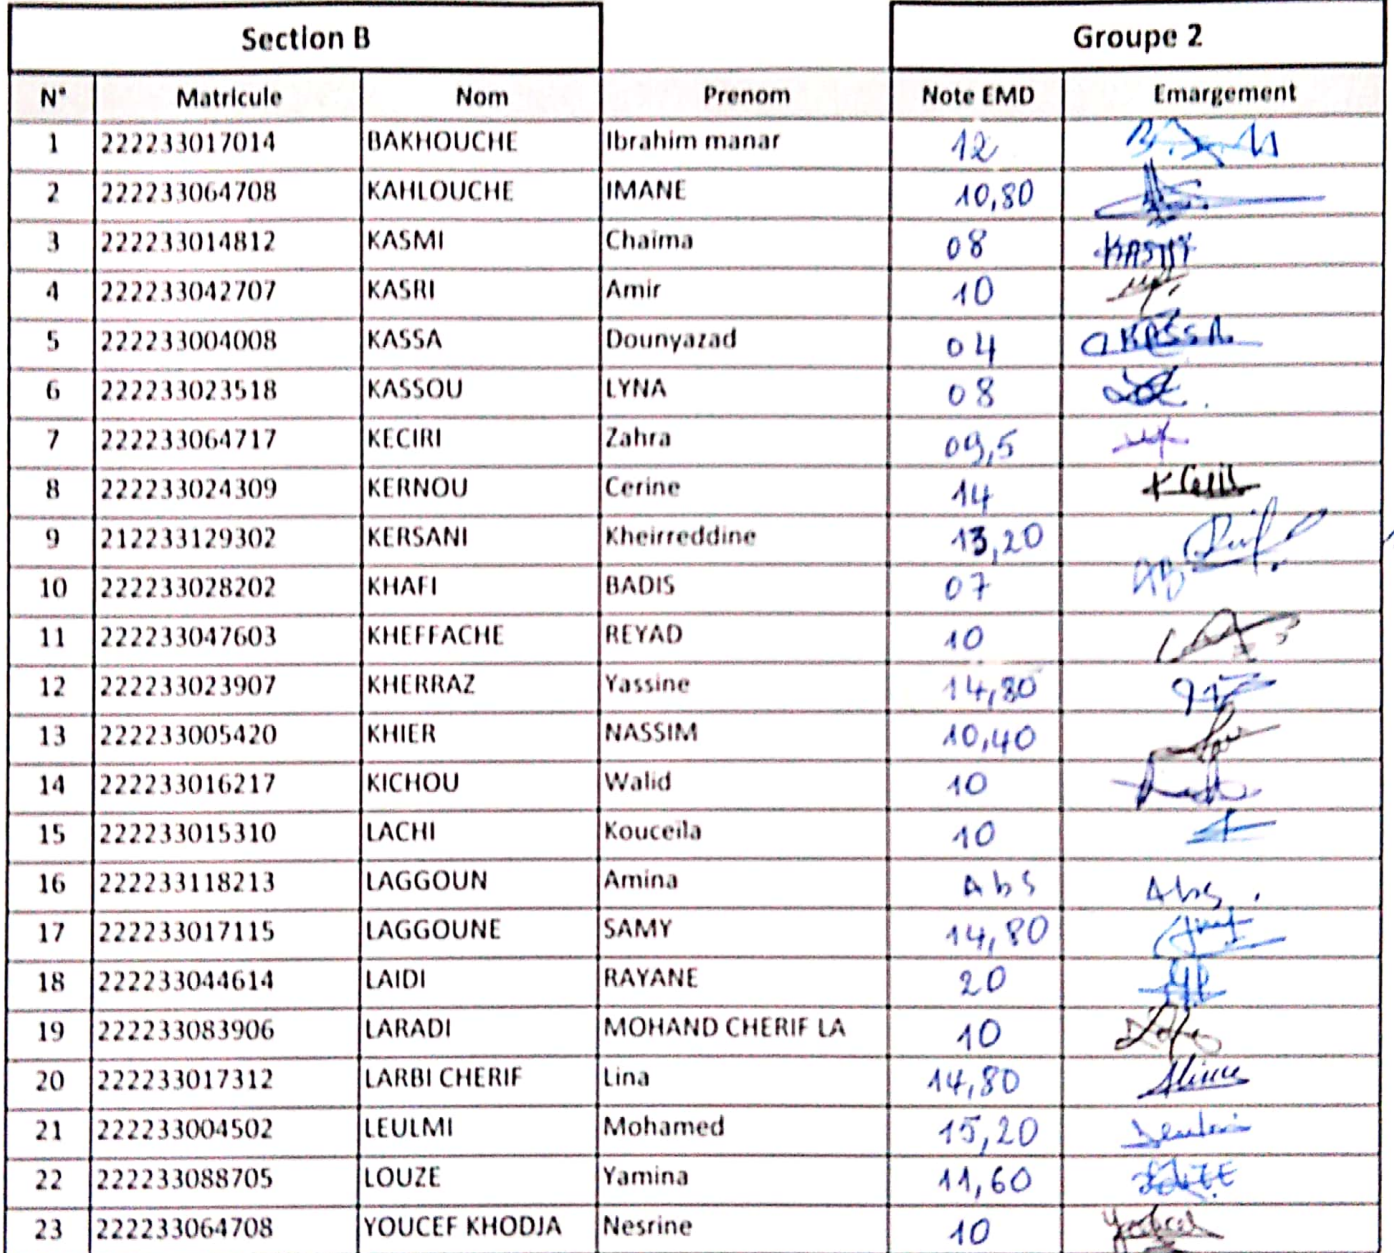 Section B Groupe 2
N° Matricule Nom Prenom Note EMD Emargement
1 222233017014 BAKHOUCHE Ibrahim manar 12
2 222233064708 KAHLOUCHE IMANE 10,80
3 222233014812 KASMI Chaima 08 KASMI
4 222233042707 KASRI Amir 10
5 222233004008 KASSA Dounyazad 04 KASSA
6 222233023518 KASSOU LYNA 08
7 222233064717 KECIRI Zahra 09,5
8 222233024309 KERNOU Cerine 14
9 212233129302 KERSANI Kheirreddine 13,20
10 222233028202 KHAFI BADIS 07
11 222233047603 KHEFFACHE REYAD 10
12 222233023907 KHERRAZ Yassine 14,80
13 222233005420 KHIER NASSIM 10,40
14 222233016217 KICHOU Walid 10
15 222233015310 LACHI Kouceila 10
16 222233118213 LAGGOUN Amina Abs Abs.
17 222233017115 LAGGOUNE SAMY 14,80
18 222233044614 LAIDI RAYANE 20
19 222233083906 LARADI MOHAND CHERIF LA 10
20 222233017312 LARBI CHERIF Lina 14,80
21 222233004502 LEULMI Mohamed 15,20
22 222233088705 LOUZE Yamina 11,60
23 222233064708 YOUCEF KHODJA Nesrine 10